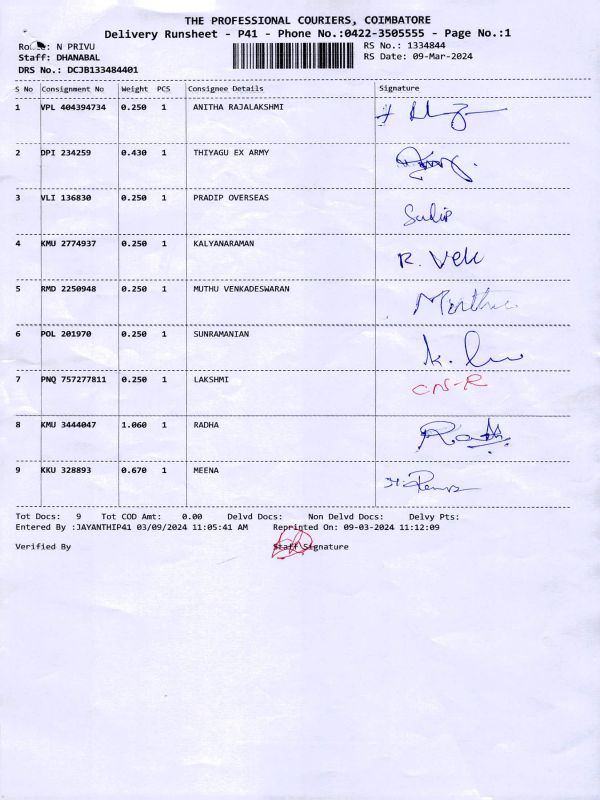 THE PROFESSIONAL COURIERS, COIMBATORE
Delivery Runsheet - P41 - Phone No.:0422-3505555 - Page No.:1
N PRIVU RS No.: 1334844
Staff: DHANABAL RS Date: 09-Mar-2024
DRS No.: DCJB133484401
S No Consignment No Weight PCS Consignee Details Signature
1 VPL 404394734 0.250 1 ANITHA RAJALAKSHMI
2 DPI 234259 0.430 1 THIYAGU EX ARMY
3 VLI 136830 0.250 1 PRADIP OVERSEAS
4 KMU 2774937 0.250 1 KALYANARAMAN R. Velu
5 RMD 2250948 0.250 1 MUTHU VENKADESWARAN
6 POL 201970 0.250 1 SUNRAMANIAN
7 PNQ 757277811 0.250 1 LAKSHMI CN-R
8 KMU 3444047 1.060 1 RADHA
9 KKU 328893 0.670 1 MEENA
Tot Docs: 9 Tot COD Amt: 0.00 Delvd Docs: Non Delvd Docs: Delvy Pts:
Entered By :JAYANTHIP41 03/09/2024 11:05:41 AM Reprinted On: 09-03-2024 11:12:09
Verified By Staff Signature